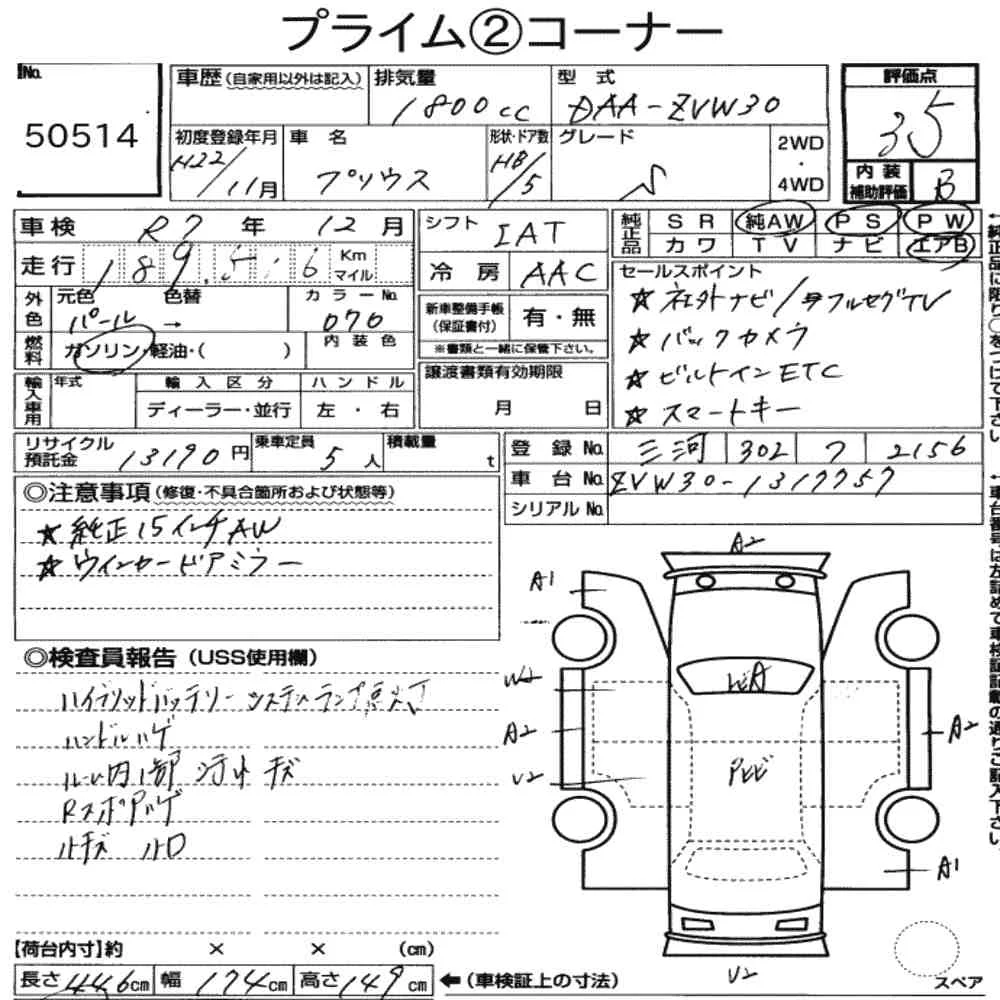 プライム②コーナー
No.
50514
車歴(自家用以外は記入)
排気量
1800cc
型式
DAA-ZVW30
評価点
35
初度登録年月
H22/11月
車名
プリウス
形状・ドア数
HB/5
グレード
S
2WD
・
4WD
内装
補助評価
B
車検 R7 年 12 月
走行 189,516 Km
マイル
シフト IAT
冷房 AAC
純正品
SR 純AW PS PW
カワ TV ナビ エアB
外色
元色 色替
パール →
カラーNo.
070
燃料
ガソリン・軽油・( )
内装色
新車整備手帳
(保証書付)
有・無
※書類と一緒に保管下さい。
セールスポイント
☆ 社外ナビ/フルセグTV
☆ バックカメラ
☆ ビルトインETC
☆ スマートキー
輸入車用
年式
輸入区分
ディーラー・並行
ハンドル
左・右
譲渡書類有効期限
月 日
リサイクル
預託金
13190円
乗車定員
5人
積載量
t
登録No. 三河 302 フ 2156
車台No. ZVW30-1317757
シリアルNo.
◎注意事項(修復・不具合箇所および状態等)
☆ 純正15インチAW
☆ ウインカードアミラー
◎検査員報告(USS使用欄)
ハイブリッドバッテリーシステムランプ点灯
ハンドルハゲ
ルーム内1部汚れキズ
A2
A1
W2
A2
U2
A2
A1
U2
【荷台内寸】約 × × (cm)
長さ446cm 幅174cm 高さ149cm
←(車検証上の寸法)
スペア
←純正品に限り○をつけて下さい。
←車台番号は左詰めで車検証記載の通りご記入下さい。